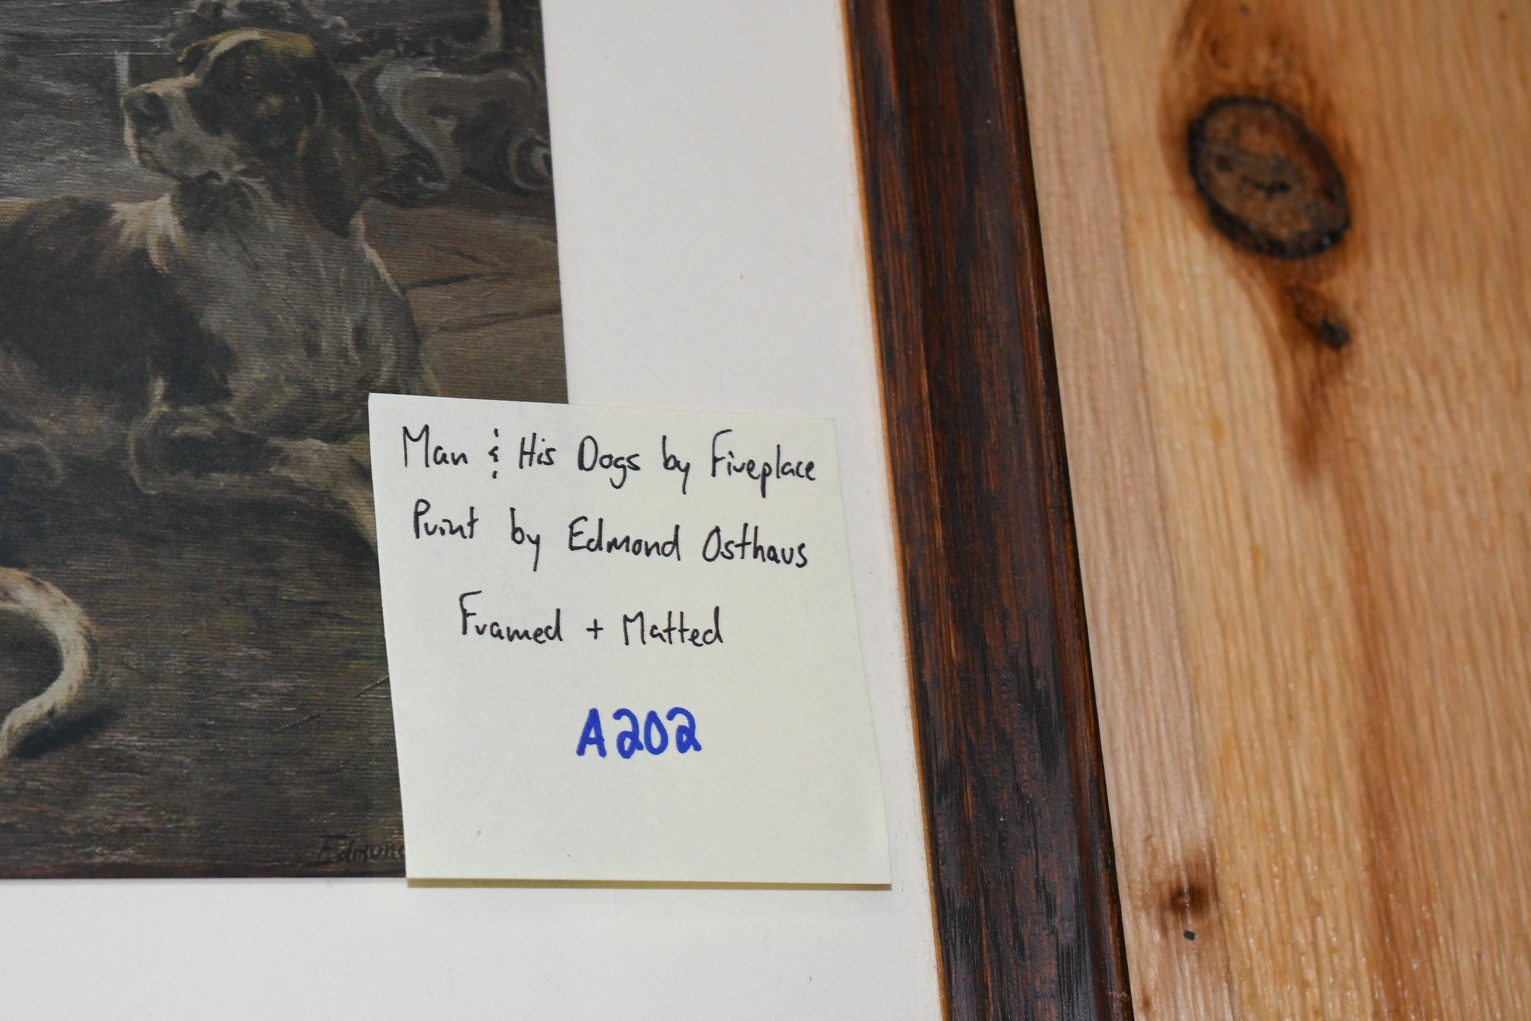 Man & His Dogs by Fireplace
Print by Edmond Osthaus
Framed + Matted
A202
Edmun